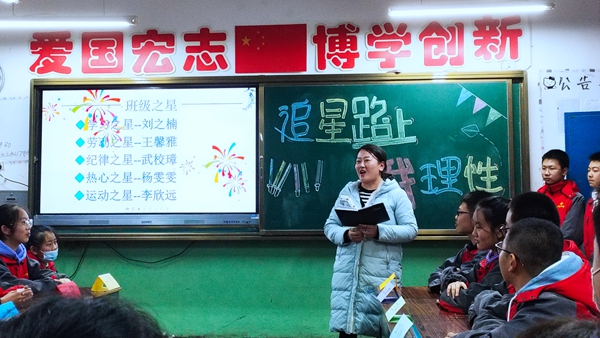 爱国宏志 博学创新
班级之星
学习之星--刘之楠
劳动之星--王馨雅
纪律之星--武校璋
热心之星--杨雯雯
运动之星--李欣远
追星路上
我理性
公告